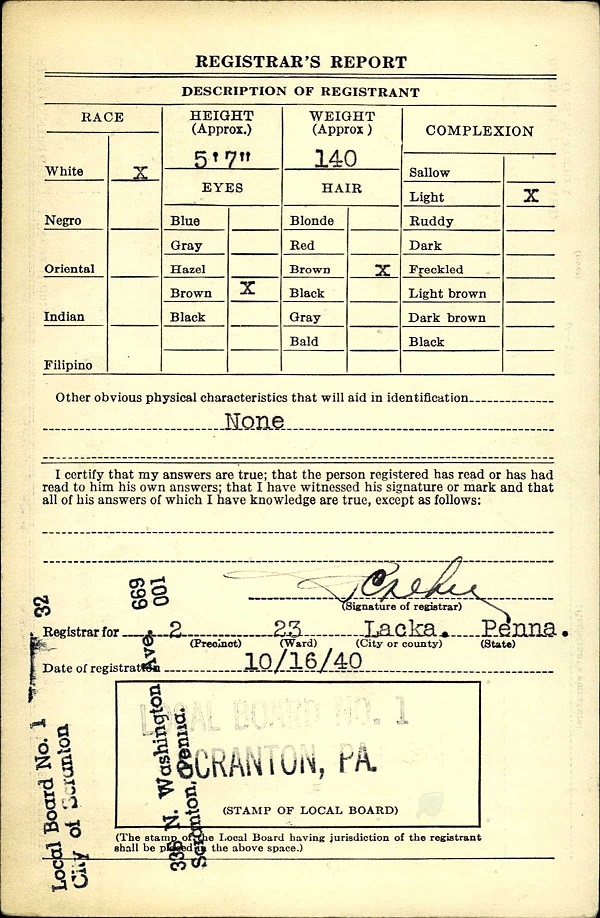 REGISTRAR'S REPORT
DESCRIPTION OF REGISTRANT
RACE
HEIGHT
(Approx.)
WEIGHT
(Approx )
COMPLEXION
5'7"
140
White X
EYES
HAIR
Sallow
Light X
Negro
Blue
Blonde
Ruddy
Gray
Red
Dark
Oriental
Hazel
Brown X
Freckled
Brown X
Black
Light brown
Indian
Black
Gray
Dark brown
Bald
Black
Filipino
Other obvious physical characteristics that will aid in identification
None
I certify that my answers are true; that the person registered has read or has had
read to him his own answers; that I have witnessed his signature or mark and that
all of his answers of which I have knowledge are true, except as follows:
(Signature of registrar)
Registrar for 2 23 Lacka. Penna.
(Precinct) (Ward) (City or county) (State)
Date of registration 10/16/40
LOCAL BOARD NO. 1
SCRANTON, PA.
(STAMP OF LOCAL BOARD)
(The stamp of the Local Board having jurisdiction of the registrant
shall be placed in the above space.)
Local Board No. 1 32
City of Scranton
669
001
336 N. Washington Ave.
Scranton, Penna.